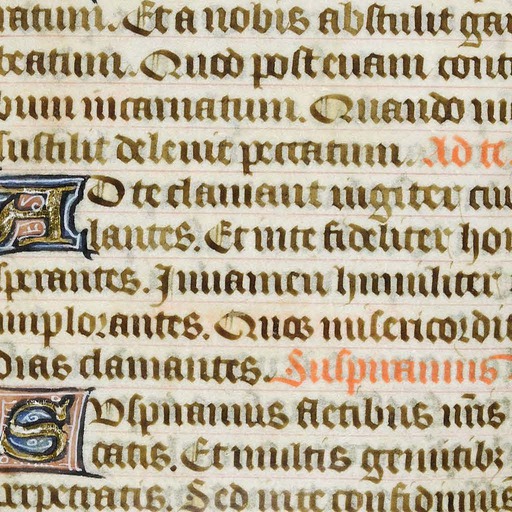 natum. Et a nobis abstulit gau
reatum. Quod post euam cont
bum incarnatum. Quando
sustulit deleuit peccatum. Ad te
AD te clamant iugiter
lantes. Et in te fideliter
sperantes. Iuuamen humiliter
implorantes. Quos misericordie
dias clamantes. Suspiramus
SUspiramus fletibus
catis. Et multis gemitibꝫ
perpetratis. Sed in te confidimus